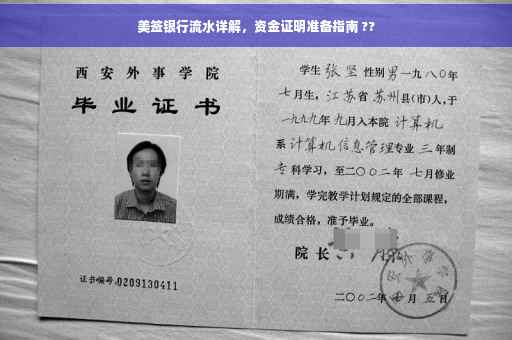 美签银行流水详解，资金证明准备指南 ??
西安外事学院
毕业证书
证书编号:0209130411
学生 张坚 性别 男 一九八〇年
七月生，江苏省 苏州 县(市)人，于
一九九九年 九月入本院 计算机
系 计算机信息管理 专业 三 年制
专 科学习，至二〇〇二年 七月修业
期满，学完教学计划规定的全部课程，
成绩合格，准予毕业。
院长
二〇〇二年 月 五 日